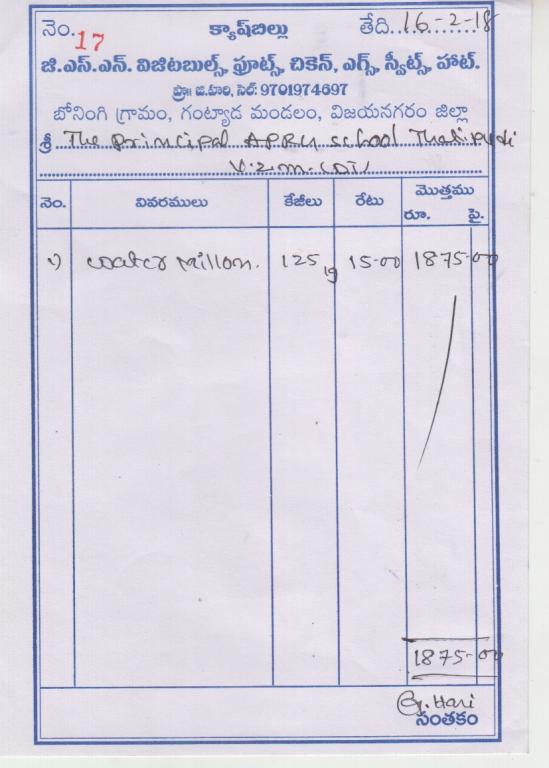 నెం. 17 క్యాష్‌బిల్లు తేది. 16-2-18
జి.ఎస్.ఎన్. విజిటబుల్స్, ఫ్రూట్స్, చికెన్, ఎగ్స్, స్వీట్స్, హాట్.
ప్రొ॥ జి.హరి, సెల్: 9701974697
బోనంగి గ్రామం, గంట్యాడ మండలం, విజయనగరం జిల్లా
శ్రీ The Principal APRU school Thatipudi
V.Z.M. (DT)
నెం. వివరములు కేజీలు రేటు మొత్తము
రూ. పై.
1) water Millon. 125 kg 15-00 1875-00
1875-00
G. Hari
సంతకం